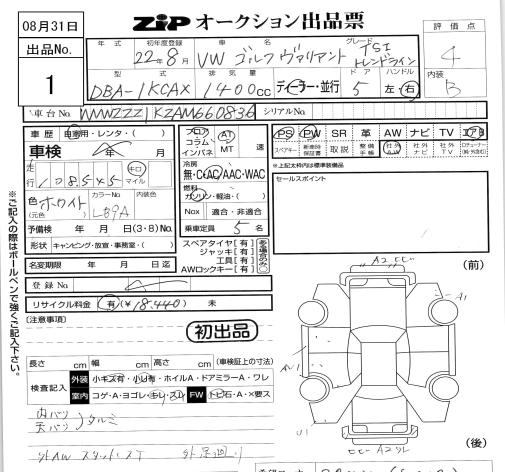 08月31日
出品No.
1
ZIP オークション出品票
評価点
4
内装
B
年式
初年度登録
22年8月
車名
VW ゴルフ ヴァリアント
グレード
TSI
トレンドライン
型式
DBA-1KCAX
排気量
1400cc
ディーラー・並行
ドア
5
ハンドル
左・右
車台No.
WVWZZZ1KZAM660836
シリアルNo.
車歴 自家用・レンタ・( )
車検 年 月
走行
108,545
キロ
マイル
色
(元色)
ホワイト
カラーNo
LB9A
内装色
予備検 年 月 日(3・8)No.
形状 キャンピング・放宣・事務室・( )
名変期限 年 月 日迄
登録No
リサイクル料金 有(¥18,440) 未
フロア
コラム
インパネ
AT
MT
速
冷房
無・C・AC/AAC・WAC
燃料
ガソリン・軽油・( )
Nox 適合・非適合
乗車定員 5 名
スペアタイヤ[有]
ジャッキ[有]
工具[有]
AWロックキー[有]
PS PW SR 革 AW ナビ TV エアB
スペアキー 新車時保証書 取説 整備手帳 社外AW 社外ナビ 社外TV
※上記太枠内は標準装備品
セールスポイント
※ご記入の際はボールペンで強くご記入下さい。
[注意事項]
初出品
長さ cm 幅 cm 高さ cm (車検証上の寸法)
検査記入
外装 小キズ有・小凹有・ホイルA・ドアミラーA・ワレ
室内 コゲ・A・ヨゴレ・キレ・スレ FW トビ石・A・×要ス
タルミ
(前)
A1
(後)